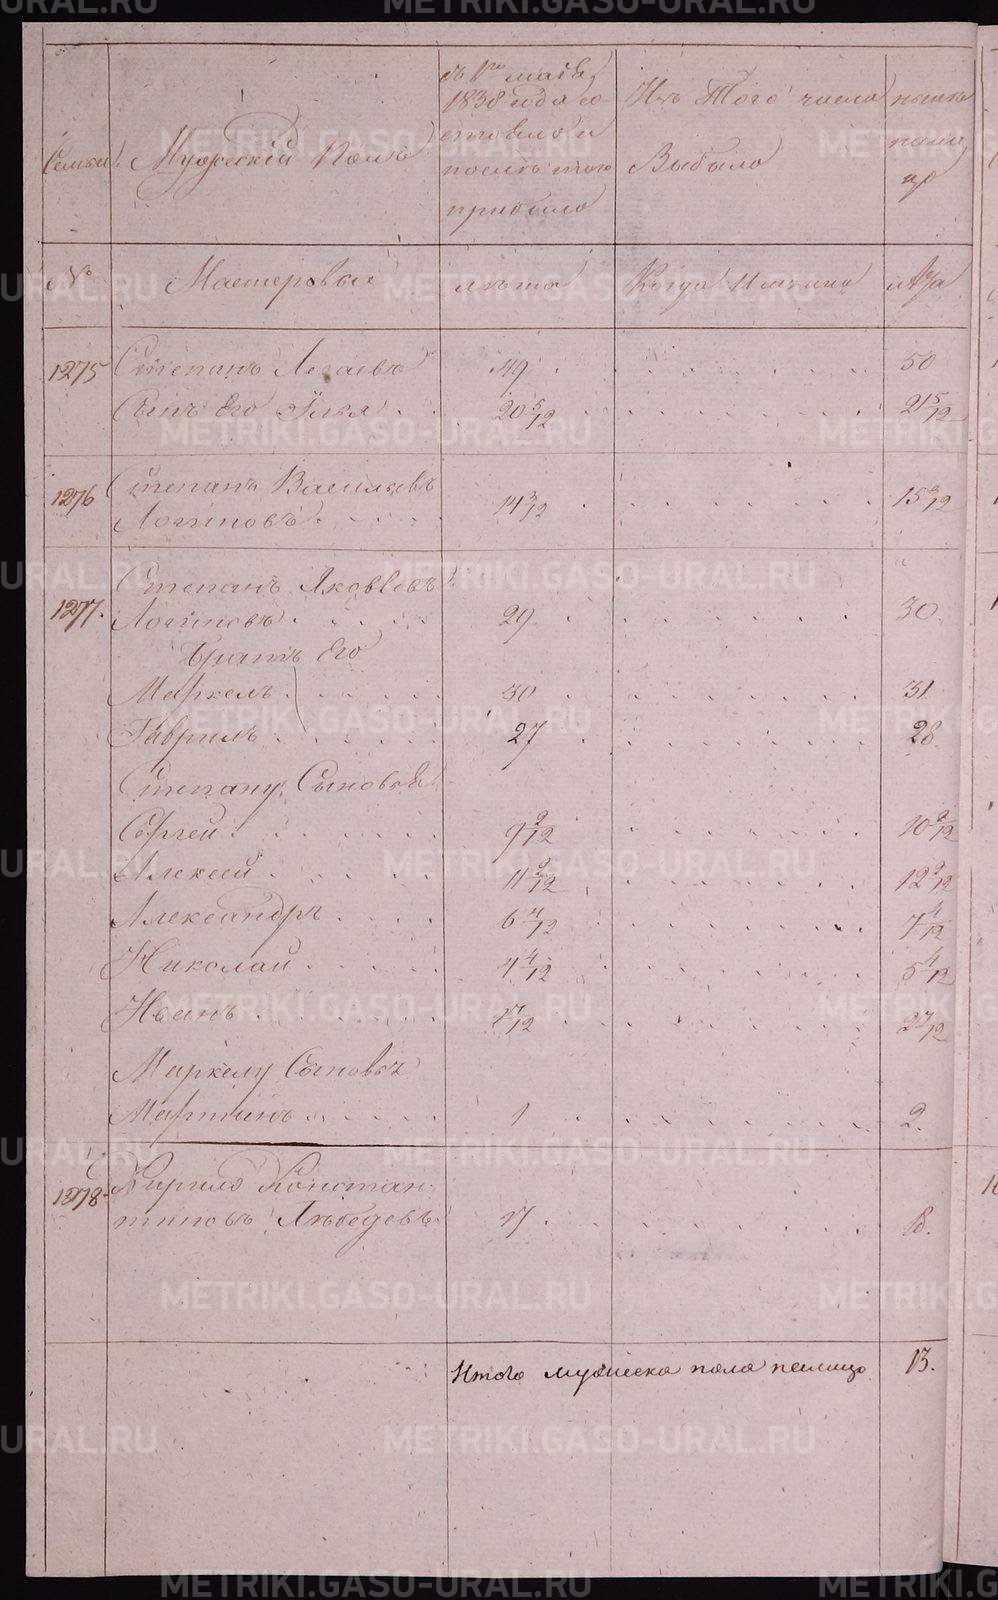 Семьи
Мужескій Полъ
съ 1го маія
1838 года со
стояло и
послѣ того
прибыло
Изъ Того числа
Выбыло
нынѣ
на ли
цо
№
Мастеровые
лѣта
Когда Имянно
лѣта
1275 Степанъ 49 50
Сынъ Его Илья 20 5/12 21 5/12
1276 Степанъ Васильевъ
Логиновъ 14 3/12 15 3/12
1277. Степанъ Яковлевъ
Логиновъ 29 30
Братъ Его
Маркелъ 30 31
Гаврилъ 27 28
Степану Сыновья
Сергей 9 2/12 10 2/12
Алексей 11 2/12 12 2/12
Александръ 6 4/12 7 4/12
Николай 4 4/12 5 4/12
Иванъ 1 7/12 2 7/12
Маркелу Сыновья
Мартынъ 1 2.
1278 Кирило Констан
тиновъ Лебедевъ 17 18.
Итого мужеска пола налицо 13.
METRIKI.GASO-URAL.RU